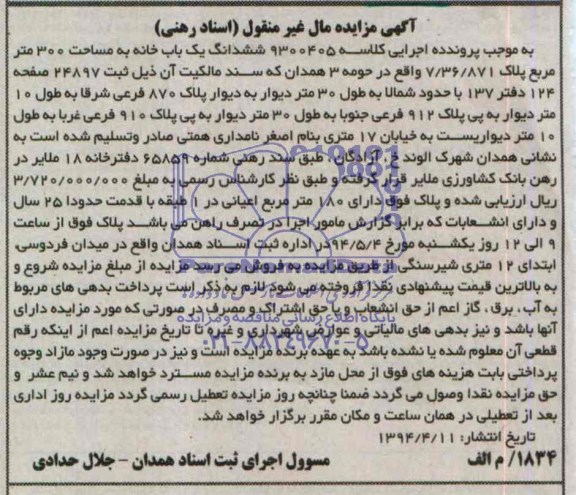 آگهی مزایده مال غیر منقول (اسناد رهنی)
به موجب پرونددە اجرایی کلاسه ۹۳۰۰۴۰۵ ششدانگ یک باب خانه به مساحت ۳۰۰ متر
مربع پلاک ۷/۳۶/۸۷۱ واقع در حومه ۳ همدان که سند مالکیت آن ذیل ثبت ۲۴۸۹۷ صفحه
۱۲۴ دفتر ۱۳۷ با حدود شمالا به طول ۳۰ متر دیوار به دیوار پلاک ۸۷۰ فرعی شرقا به طول ۱۰
متر دیوار به پی پلاک ۹۱۲ فرعی جنوبا به طول ۳۰ متر دیوار به پی پلاک ۹۱۰ فرعی غربا به طول
۱۰ متر دیواریست به خیابان ۱۷ متری بنام اصغر نامداری همتی صادر وتسلیم شده است به
نشانی همدان شهرک الوند خ آزادگان طبق سند رهنی شماره ۶۵۸۵۹ دفترخانه ۱۸ ملایر در
رهن بانک کشاورزی ملایر قرار گرفته و طبق نظر کارشناس رسمی به مبلغ ۳/۷۲۰/۰۰۰/۰۰۰
ریال ارزیابی شده و پلاک فوق دارای ۱۸۰ متر مربع اعیانی در ۱ طبقه با قدمت حدودا ۲۵ سال
و دارای انشعابات که برابر گزارش مامور اجرا در تصرف راهن می باشد پلاک فوق از ساعت
۹ الی ۱۲ روز یکشنبه مورخ ۹۴/۵/۴ در اداره ثبت اسناد همدان واقع در میدان فردوسی،
ابتدای ۱۲ متری شیرسنگی از طریق مزایده به فروش می رسد مزایده از مبلغ مزایده شروع و
به بالاترین قیمت پیشنهادی نقدا فروخته می شود لازم به ذکر است پرداخت بدهی های مربوط
به آب، برق، گاز اعم از حق انشعاب و یا حق اشتراک و مصرف در صورتی که مورد مزایده دارای
آنها باشد و نیز بدهی های مالیاتی و عوارض شهرداری و غیره تا تاریخ مزایده اعم از اینکه رقم
قطعی آن معلوم شده یا نشده باشد به عهده برنده مزایده است و نیز در صورت وجود مازاد وجوه
پرداختی بابت هزینه های فوق از محل مازد به برنده مزایده مسترد خواهد شد و نیم عشر و
حق مزایده نقدا وصول می گردد ضمنا چنانچه روز مزایده تعطیل رسمی گردد مزایده روز اداری
بعد از تعطیلی در همان ساعت و مکان مقرر برگزار خواهد شد.
تاریخ انتشار: ۱۳۹۴/۴/۱۱
۱۸۳۴/ م الف مسوول اجرای ثبت اسناد همدان - جلال حدادی
پایگاه اطلاع رسانی مناقصه و مزایده
۰۲۱-۸۸۳۴۹۶۷۰-۵